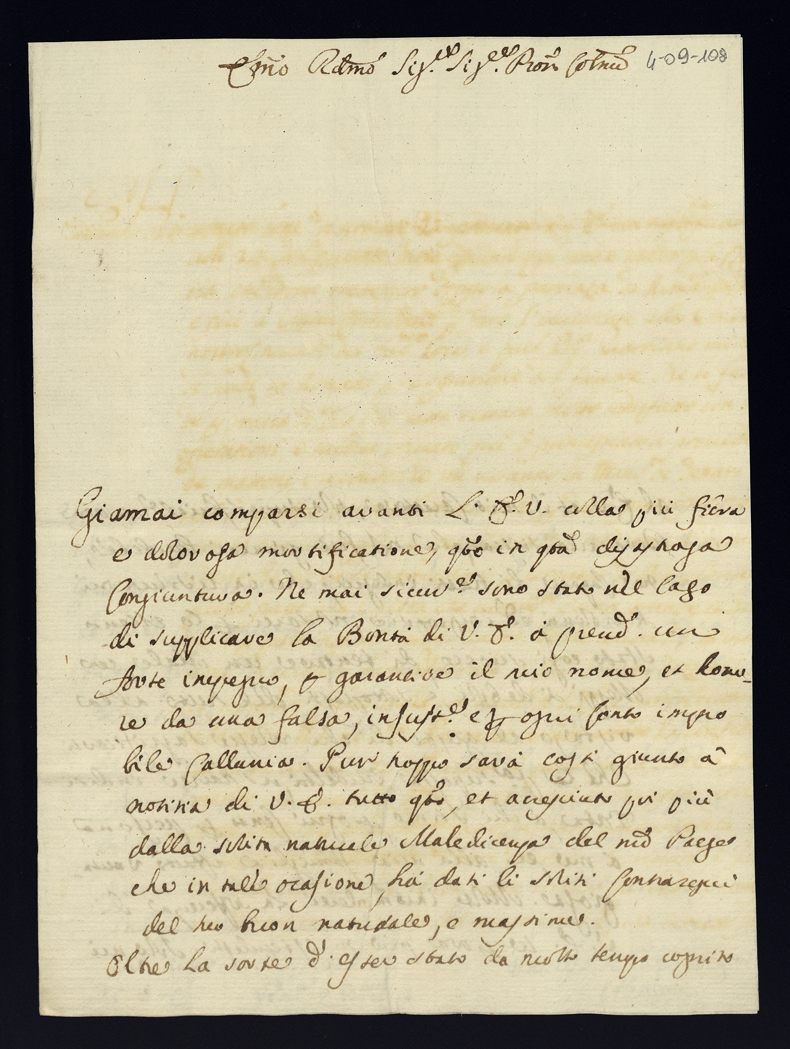 Emo Rdmo Sig.re Sig.re Pron Colmo 4-09-108
Giamai comparsi avanti L' E. V. colla più fiera
e dolorosa mortificatione, qto in qta
Congiuntura. Ne mai sicur.e sono stato nel caso
di supplicare la Bontà di V. E. à prend. un
forte impegno, p garantire il mio nome, et hono¬
re da una falsa, insusist.e e p ogni Conto impro
bile Callunia. Pur troppo sarà costì giunto à
notitia di V. E. tutto qto, et acresciuto poi più
dalla solita naturale Maledicenza del mio Paese
che in tall' ocasione, hà dati li soliti Contrasegni
del suo buon naturale, e massime.
Oltre la sorte d' esser stato da molto tempo cognito